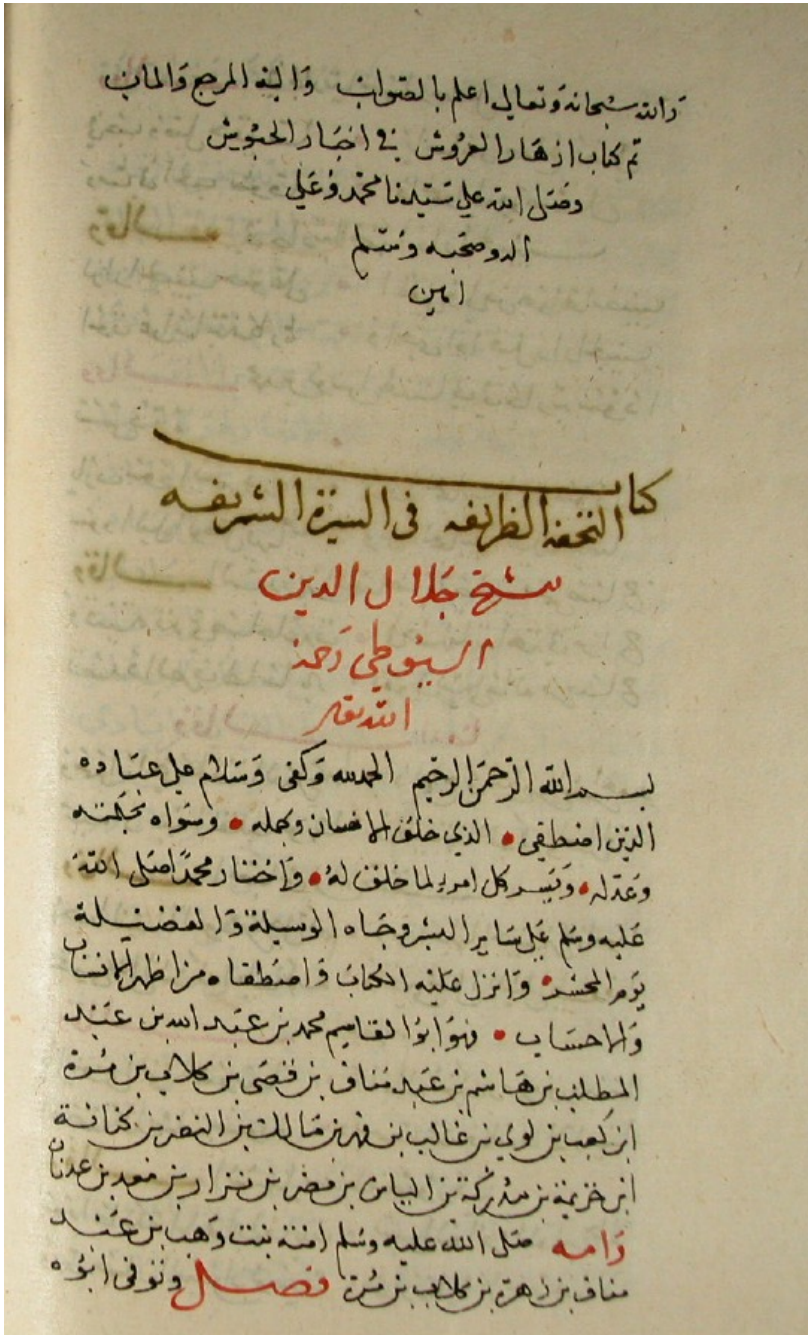 والله سبحانه وتعالى اعلم بالصواب واليه المرجع والماب
تم كتاب ازهار العروش في اخبار الحبوش
وصلى الله علي سيدنا محمد وعلي
اله وصحبه وسلم
امين
كتاب
التحفة الظريفه في السيرة الشريفه
للشيخ جلال الدين
السيوطي رحمه
الله تعالى
بسم الله الرحمن الرحيم الحمد لله وكفى وسلام علي عباده
الذين اصطفي • الذي خلق الانسان وكمله • وسواه بحكمته
وعدله • ويسر كل امرء لما خلق له • واختار محمدا صلى الله
عليه وسلم علي ساير البشر وحباه الوسيلة والفضيلة
يوم المحشر • وانزل عليه الكتاب واصطفاه من اظهر الانساب
والاحساب • فهو ابو القاسم محمد بن عبد الله بن عبد
المطلب بن هاشم بن عبد مناف بن قصي بن كلاب بن مرة
ابن كعب بن لوي بن غالب بن فهر بن مالك بن النضر بن كنانة
ابن خزيمة بن مدركة بن الياس بن مضر بن نزار بن معد بن عدنان
وامه صلى الله عليه وسلم امنة بنت وهب بن عبد
مناف بن زهرة بن كلاب بن مرة فصل وتوفى ابوه